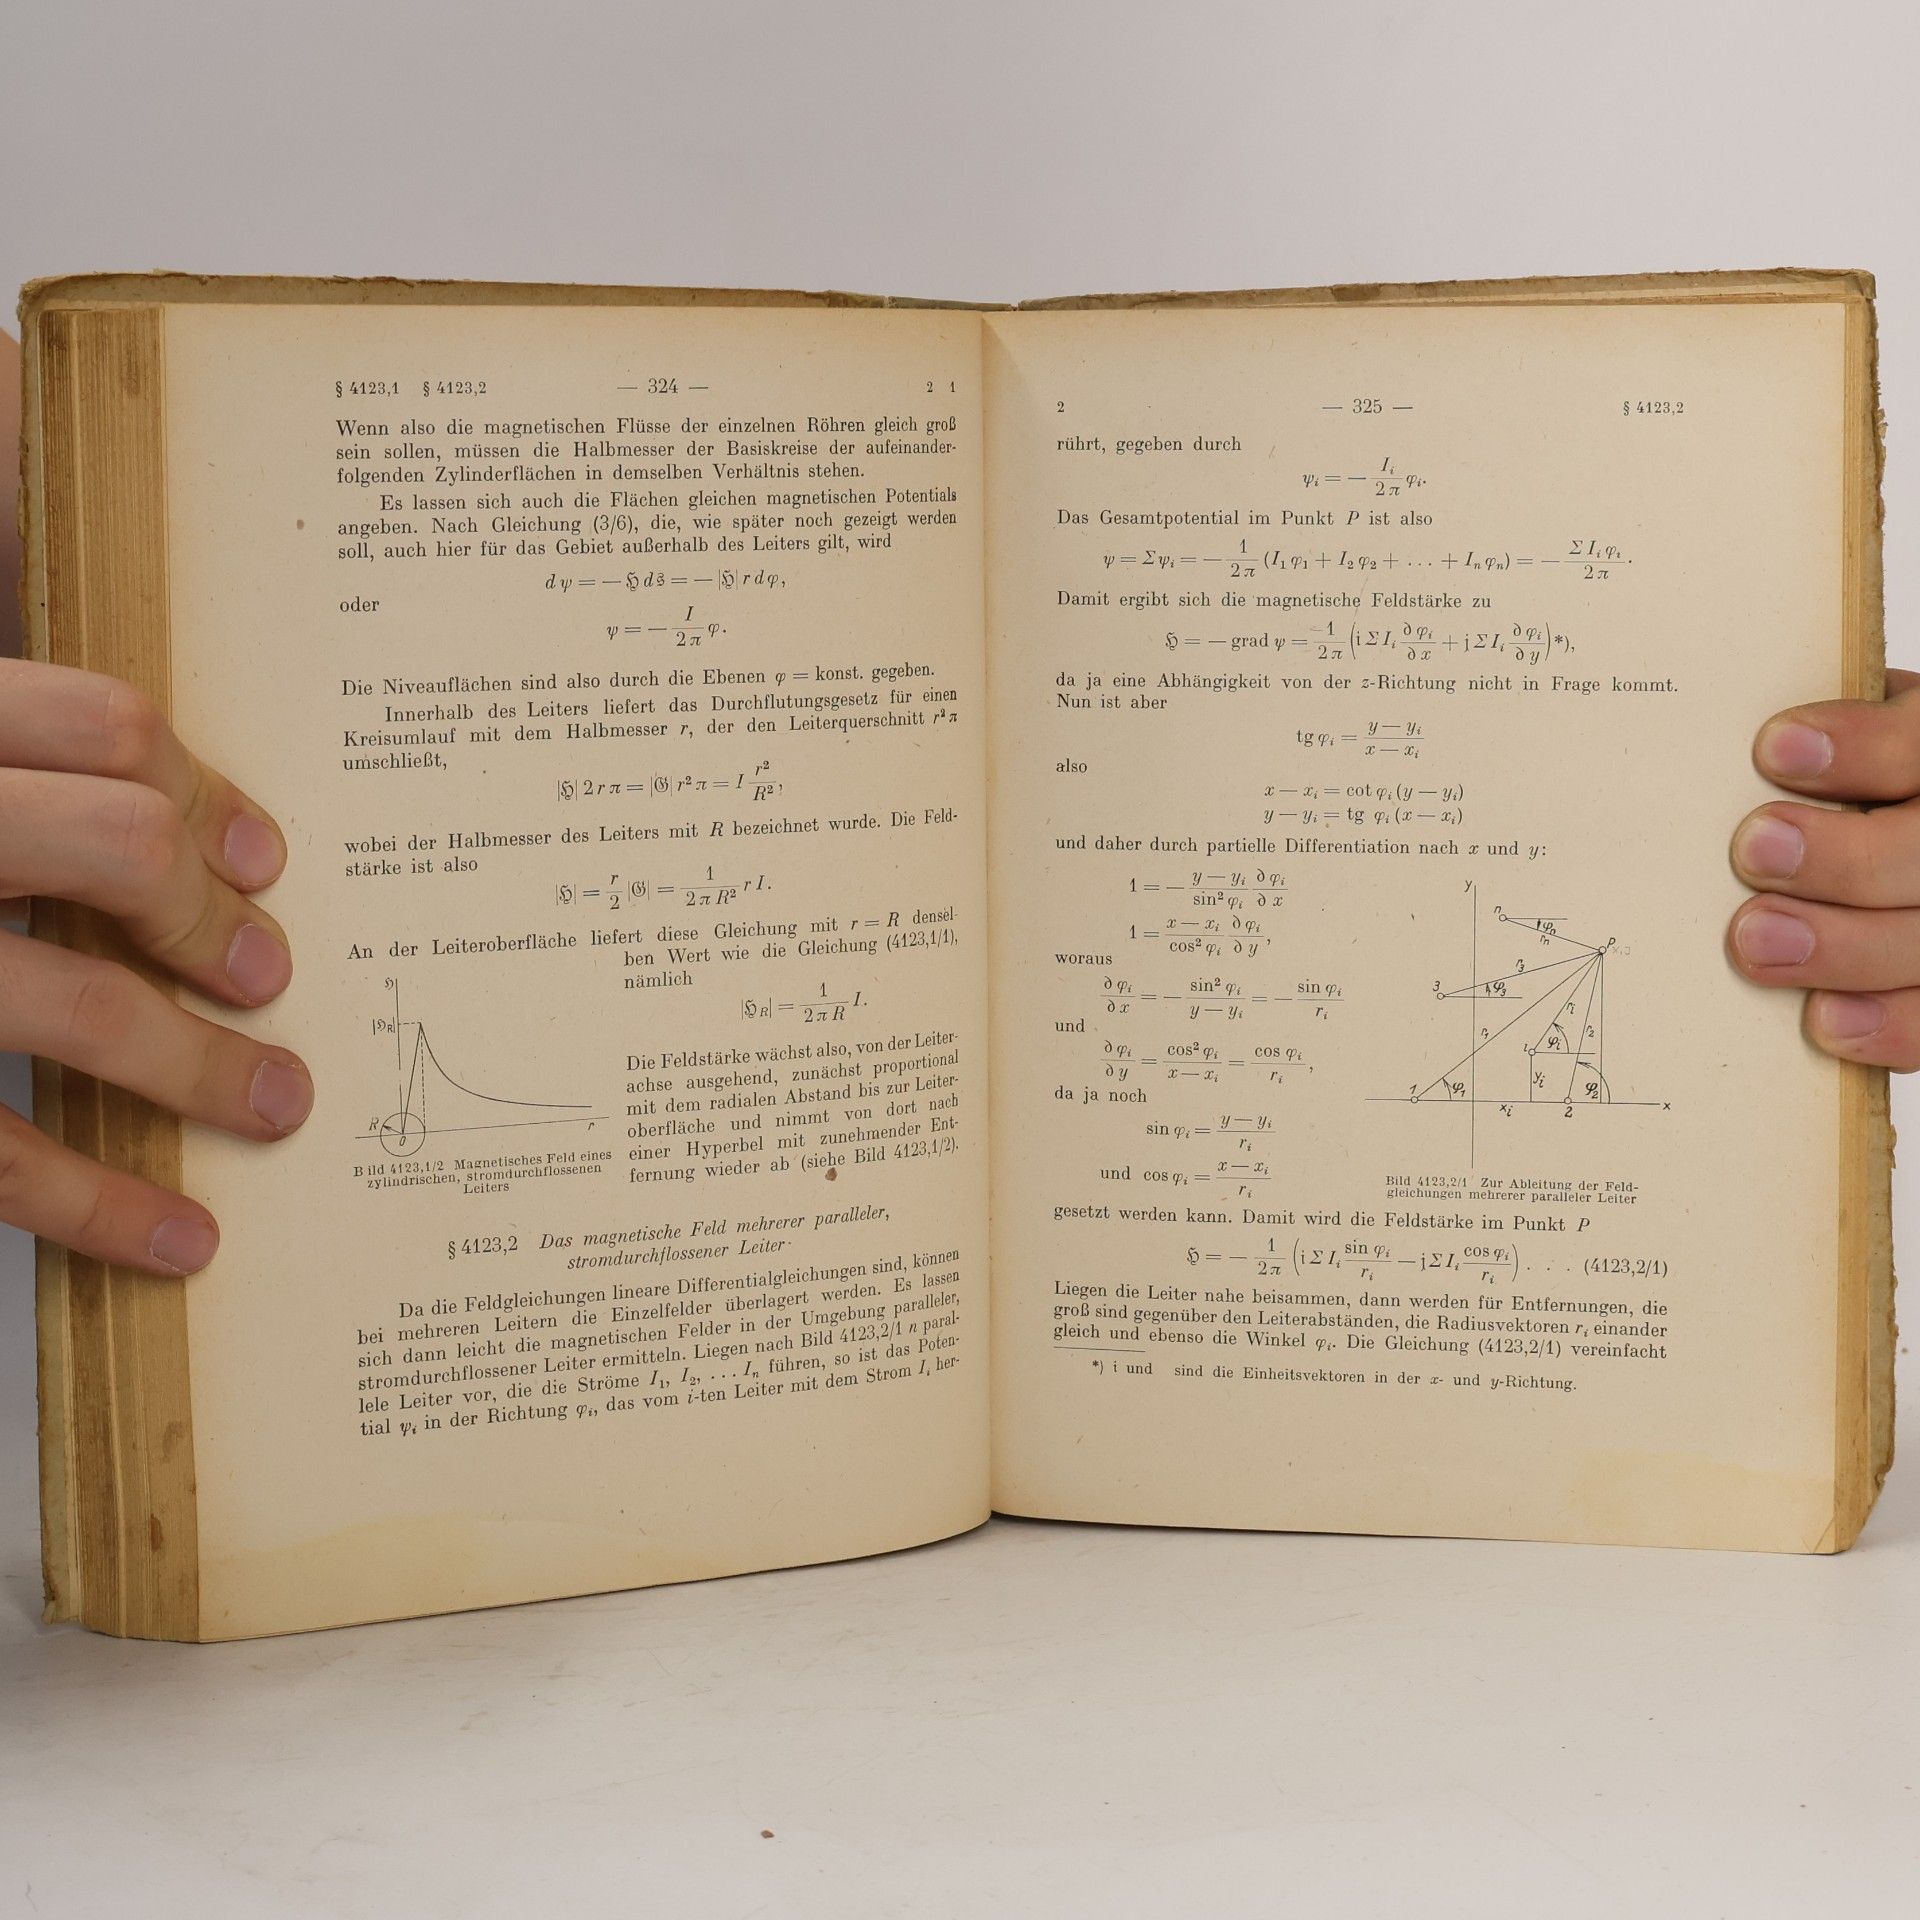 § 4123,1 § 4123,2 — 324 — 2 1
Wenn also die magnetischen Flüsse der einzelnen Röhren gleich groß
sein sollen, müssen die Halbmesser der Basiskreise der aufeinander-
folgenden Zylinderflächen in demselben Verhältnis stehen.
Es lassen sich auch die Flächen gleichen magnetischen Potentials
angeben. Nach Gleichung (3/6), die, wie später noch gezeigt werden
soll, auch hier für das Gebiet außerhalb des Leiters gilt, wird
d ψ = — ℌ d𝔰 = — |ℌ| r d φ,
oder
ψ = — I / 2 π φ.
Die Niveauflächen sind also durch die Ebenen φ = konst. gegeben.
Innerhalb des Leiters liefert das Durchflutungsgesetz für einen
Kreisumlauf mit dem Halbmesser r, der den Leiterquerschnitt r² π
umschließt,
|ℌ| 2 r π = |𝔊| r² π = I r² / R²,
wobei der Halbmesser des Leiters mit R bezeichnet wurde. Die Feld-
stärke ist also
|ℌ| = r / 2 |𝔊| = 1 / 2 π R² r I.
An der Leiteroberfläche liefert diese Gleichung mit r = R densel-
ben Wert wie die Gleichung (4123,1/1),
nämlich
|ℌ_R| = 1 / 2 π R I.
Die Feldstärke wächst also, von der Leiter-
achse ausgehend, zunächst proportional
mit dem radialen Abstand bis zur Leiter-
oberfläche und nimmt von dort nach
einer Hyperbel mit zunehmender Ent-
fernung wieder ab (siehe Bild 4123,1/2).
ℌ
|ℌ_R|
R
0
r
Bild 4123,1/2 Magnetisches Feld eines
zylindrischen, stromdurchflossenen
Leiters
§ 4123,2 Das magnetische Feld mehrerer paralleler,
stromdurchflossener Leiter.
Da die Feldgleichungen lineare Differentialgleichungen sind, können
bei mehreren Leitern die Einzelfelder überlagert werden. Es lassen
sich dann leicht die magnetischen Felder in der Umgebung paralleler,
stromdurchflossener Leiter ermitteln. Liegen nach Bild 4123,2/1 n paral-
lele Leiter vor, die die Ströme I₁, I₂, ... Iₙ führen, so ist das Poten-
tial ψᵢ in der Richtung φᵢ, das vom i-ten Leiter mit dem Strom Iᵢ her-
2 — 325 — § 4123,2
rührt, gegeben durch
ψᵢ = — Iᵢ / 2 π φᵢ.
Das Gesamtpotential im Punkt P ist also
ψ = Σ ψᵢ = — 1 / 2 π (I₁ φ₁ + I₂ φ₂ + ... + Iₙ φₙ) = — Σ Iᵢ φᵢ / 2 π.
Damit ergibt sich die magnetische Feldstärke zu
ℌ = — grad ψ = —1 / 2 π (i Σ Iᵢ ∂ φᵢ / ∂ x + j Σ Iᵢ ∂ φᵢ / ∂ y)*),
da ja eine Abhängigkeit von der z-Richtung nicht in Frage kommt.
Nun ist aber
tg φᵢ = y — yᵢ / x — xᵢ
also
x — xᵢ = cot φᵢ (y — yᵢ)
y — yᵢ = tg φᵢ (x — xᵢ)
und daher durch partielle Differentiation nach x und y:
1 = — y — yᵢ / sin² φᵢ ∂ φᵢ / ∂ x
1 = x — xᵢ / cos² φᵢ ∂ φᵢ / ∂ y,
woraus
∂ φᵢ / ∂ x = — sin² φᵢ / y — yᵢ = — sin φᵢ / rᵢ
und
∂ φᵢ / ∂ y = cos² φᵢ / x — xᵢ = cos φᵢ / rᵢ,
da ja noch
sin φᵢ = y — yᵢ / rᵢ
und cos φᵢ = x — xᵢ / rᵢ
y
n
φₙ
rₙ
P
3
r₃
φ₃
r₁
rᵢ
r₂
i
φᵢ
yᵢ
1
φ₁
xᵢ
2
φ₂
x
Bild 4123,2/1 Zur Ableitung der Feld-
gleichungen mehrerer paralleler Leiter
gesetzt werden kann. Damit wird die Feldstärke im Punkt P
ℌ = — 1 / 2 π (i Σ Iᵢ sin φᵢ / rᵢ — j Σ Iᵢ cos φᵢ / rᵢ) . . . (4123,2/1)
Liegen die Leiter nahe beisammen, dann werden für Entfernungen, die
groß sind gegenüber den Leiterabständen, die Radiusvektoren rᵢ einander
gleich und ebenso die Winkel φᵢ. Die Gleichung (4123,2/1) vereinfacht
*) i und sind die Einheitsvektoren in der x- und y-Richtung.